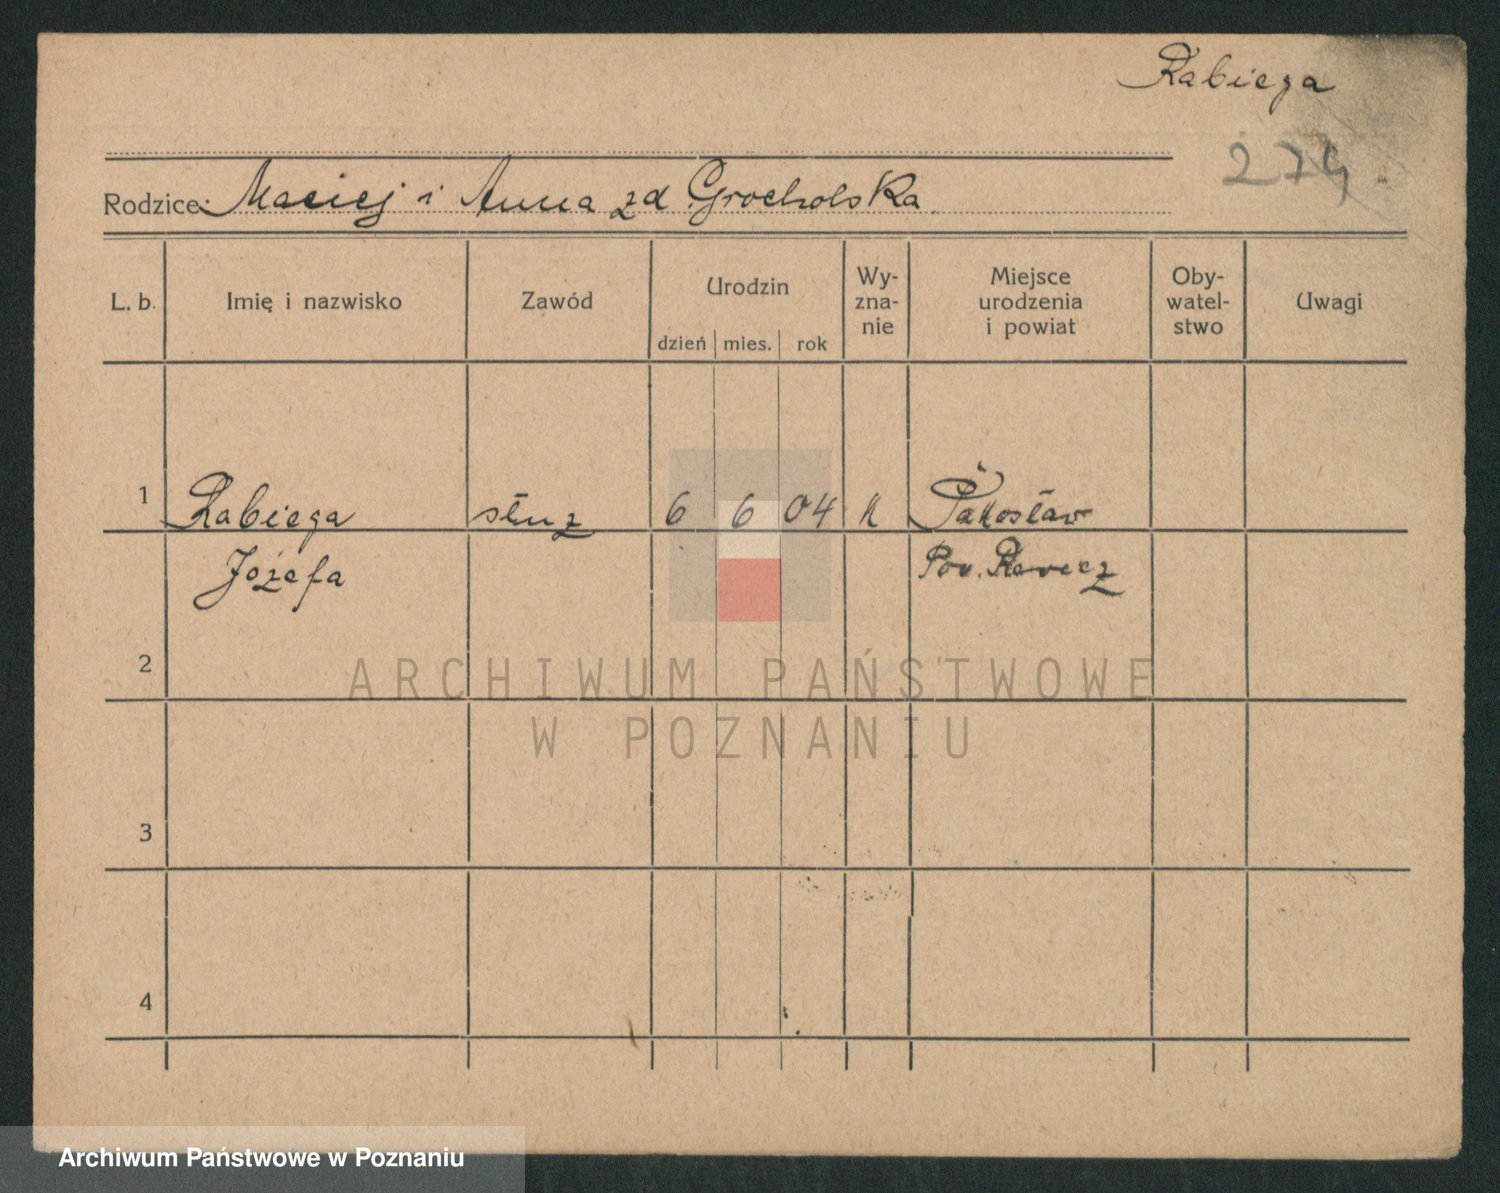 Rabiega
274
Rodzice: Maciej i Anna zd Grocholska
L. b. Imię i nazwisko Zawód Urodzin dzień mies. rok Wy-zna-nie Miejsce urodzenia i powiat Oby-watel-stwo Uwagi
1 Rabiega służ 6 6 04 k Pakosław
Józefa Pow. Rawicz
2
3
4
ARCHIWUM PAŃSTWOWE
W POZNANIU
Archiwum Państwowe w Poznaniu